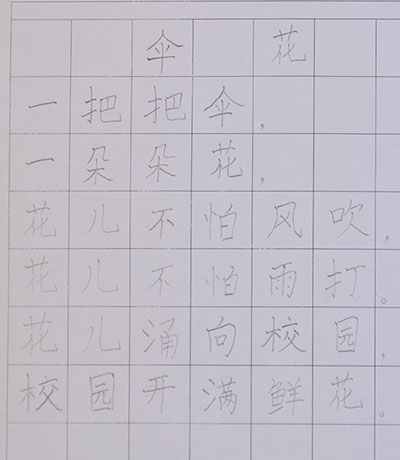 伞 花
一把把伞，
一朵朵花，
花儿不怕风吹，
花儿不怕雨打。
花儿涌向校园，
校园开满鲜花。